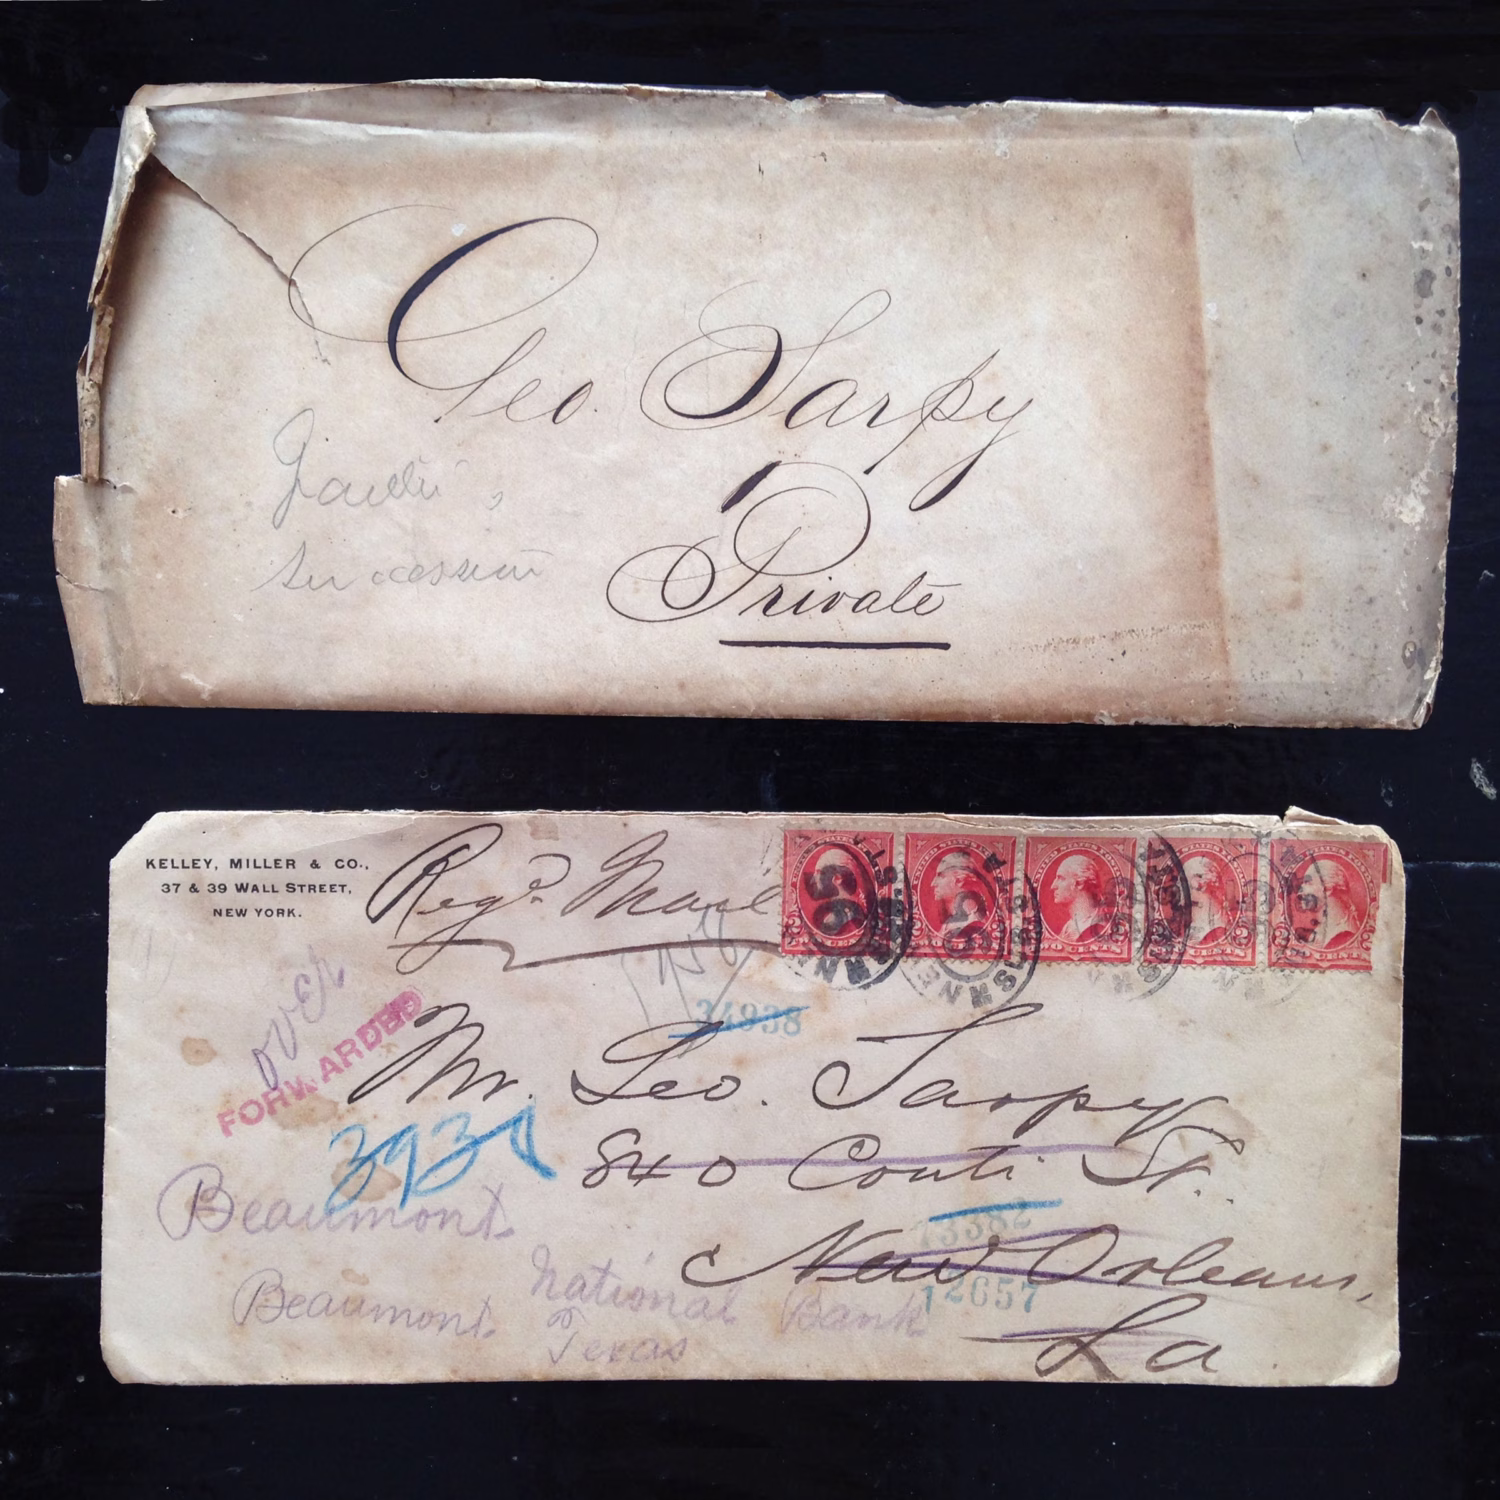 Geo. Sarpy
succession
Private
KELLEY, MILLER & CO.,
37 & 39 WALL STREET,
NEW YORK.
Regd Mail
over
FORWARDED
34938
Mr. Geo. Sarpy
840 Conti St.
3938
13382
New Orleans,
12657
La.
Beaumont
National Bank
Beaumont Texas